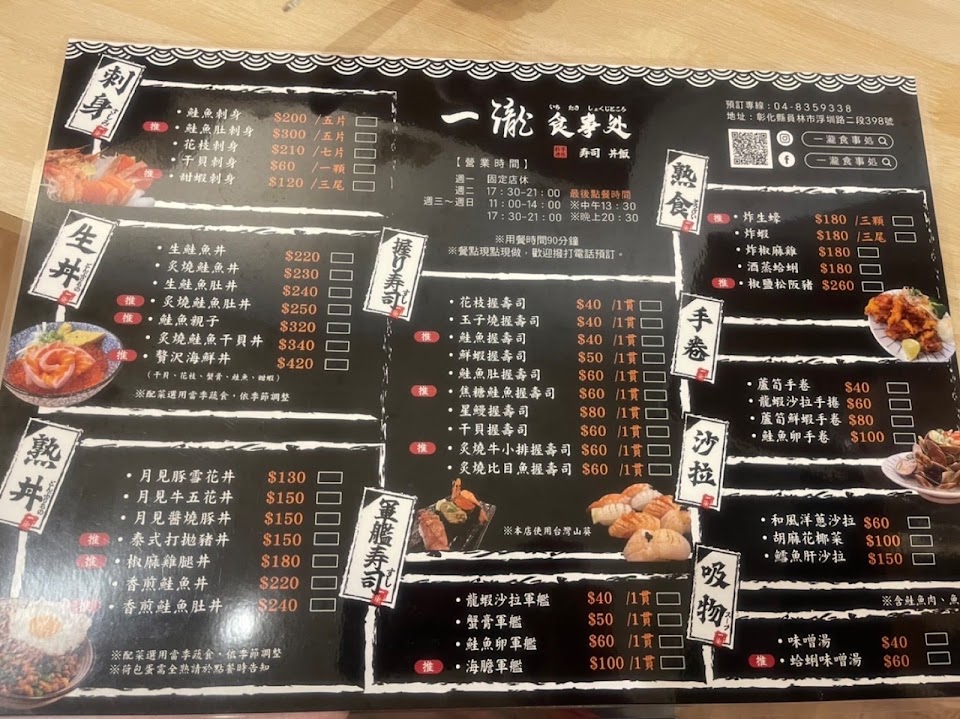 一瀧食事处
いち たき しょくじどころ
寿司 丼飯
【營業時間】
週一 固定店休
週二 17:30-21:00 最後點餐時間
週三～週日 11:00-14:00 ※中午13:30
17:30-21:00 ※晚上20:30
※用餐時間90分鐘
※餐點現點現做，歡迎撥打電話預訂。
預訂專線:04-8359338
地址:彰化縣員林市浮圳路二段398號
一瀧食事処
一瀧食事処
刺身
・鮭魚刺身 $200 /五片
推 ・鮭魚肚刺身 $300 /五片
・花枝刺身 $210 /七片
・干貝刺身 $60 /一顆
推 ・甜蝦刺身 $120 /三尾
生丼
・生鮭魚丼 $220
・炙燒鮭魚丼 $230
・生鮭魚肚丼 $240
推 ・炙燒鮭魚肚丼 $250
推 ・鮭魚親子 $320
・炙燒鮭魚干貝丼 $340
推 ・贅沢海鮮丼 $420
(干貝、花枝、蟹膏、鮭魚、甜蝦)
※配菜選用當季蔬食，依季節調整
熟丼
・月見豚雪花丼 $130
・月見牛五花丼 $150
・月見醬燒豚丼 $150
推 ・泰式打拋豬丼 $150
推 ・椒麻雞腿丼 $180
・香煎鮭魚丼 $220
推 ・香煎鮭魚肚丼 $240
※配菜選用當季蔬食，依季節調整
※荷包蛋需全熟請於點餐時告知
握り寿司 すし
・花枝握壽司 $40 /1貫
・玉子燒握壽司 $40 /1貫
推 ・鮭魚握壽司 $40 /1貫
・鮮蝦握壽司 $50 /1貫
・鮭魚肚握壽司 $60 /1貫
推 ・焦糖鮭魚握壽司 $60 /1貫
・星鰻握壽司 $80 /1貫
・干貝握壽司 $60 /1貫
推 ・炙燒牛小排握壽司 $60 /1貫
・炙燒比目魚握壽司 $60 /1貫
※本店使用台灣山葵
軍艦寿司 すし
・龍蝦沙拉軍艦 $40 /1貫
・蟹膏軍艦 $50 /1貫
・鮭魚卵軍艦 $60 /1貫
推 ・海膽軍艦 $100 /1貫
熟食
推 ・炸生蠔 $180 /三顆
・炸蝦 $180 /三尾
・炸椒麻雞 $180
・酒蒸蛤蜊 $180
推 ・椒鹽松阪豬 $260
手卷
・蘆筍手卷 $40
・龍蝦沙拉手捲 $60
・蘆筍鮮蝦手卷 $80
・鮭魚卵手卷 $100
沙拉
・和風洋蔥沙拉 $60
・胡麻花椰菜 $100
・鱈魚肝沙拉 $150
吸物
※含鮭魚肉、魚
・味噌湯 $40
推 ・蛤蜊味噌湯 $60